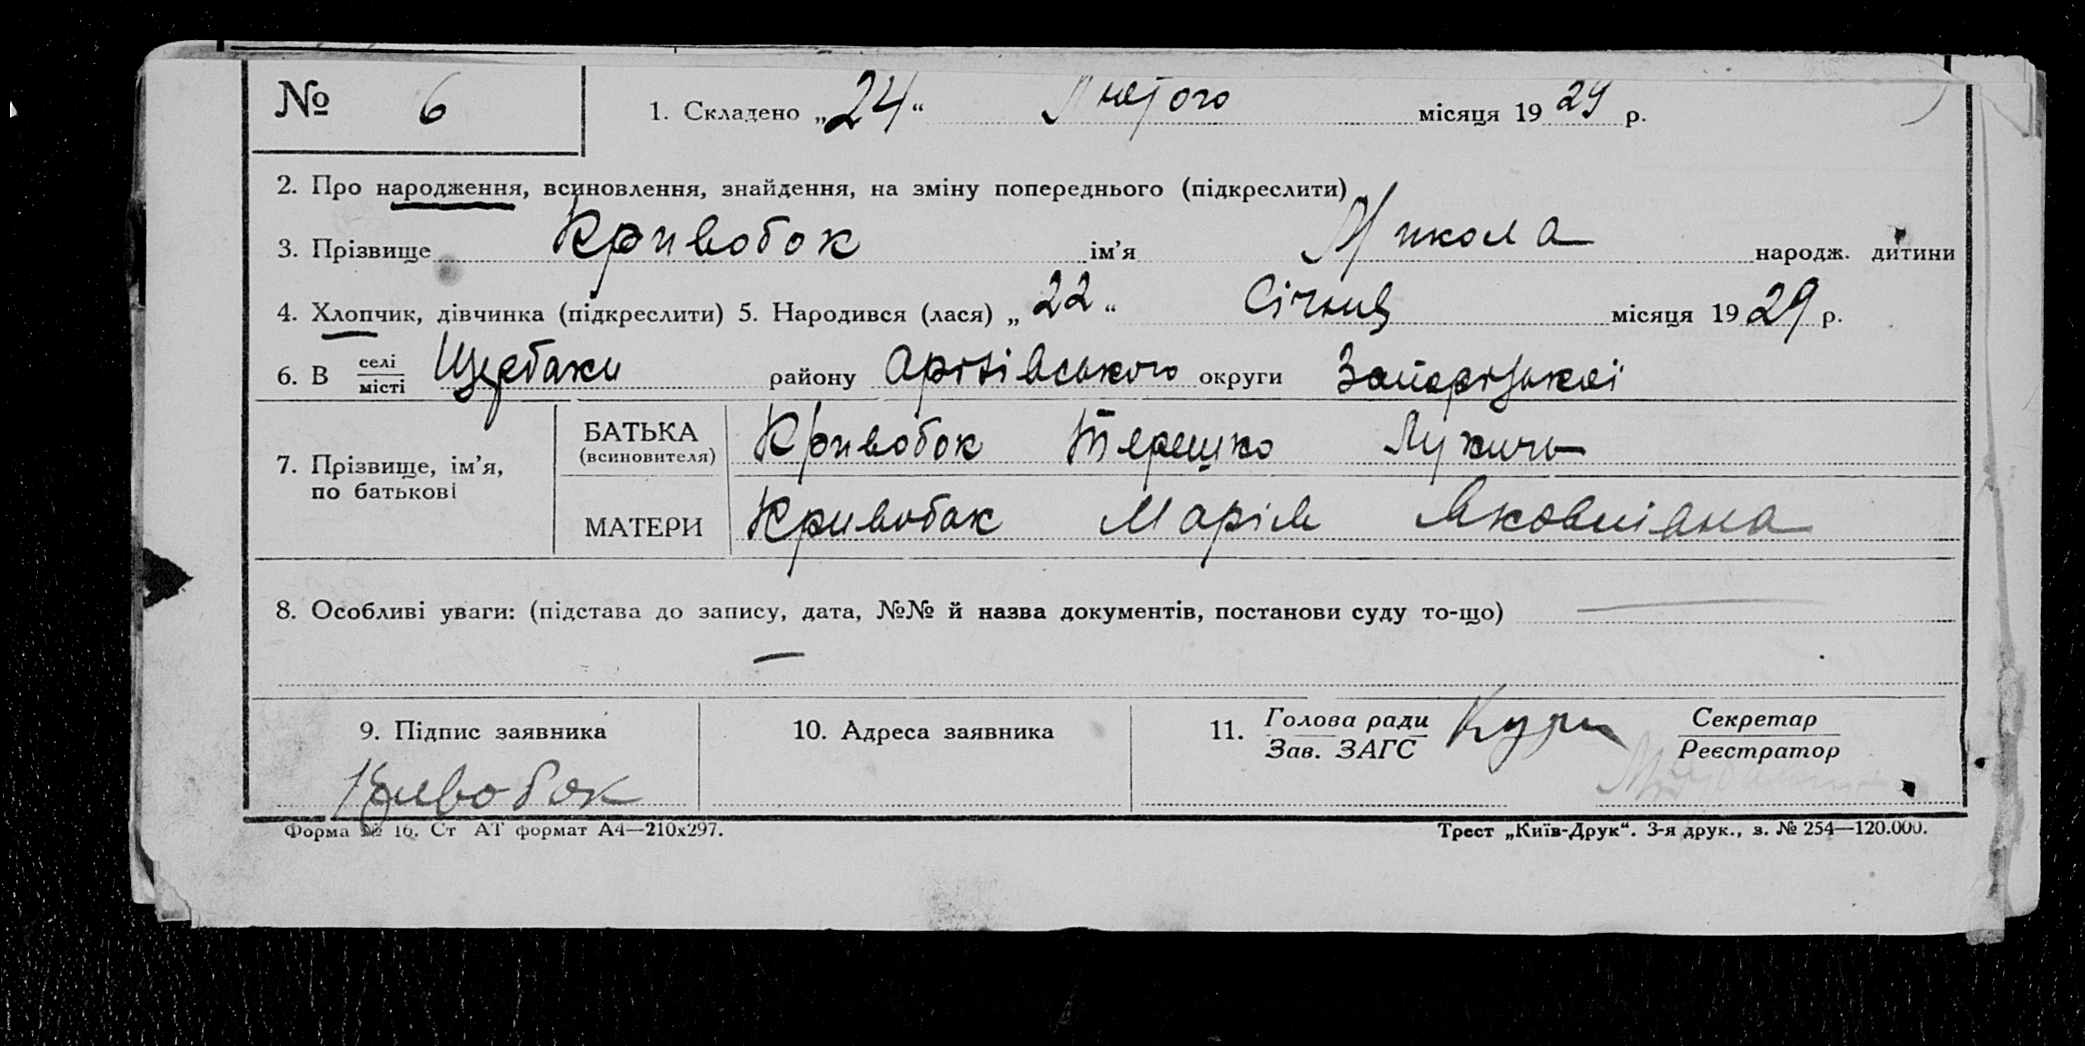 № 6 1. Складено „24“ Лютого місяця 1929 р.
2. Про народження, всиновлення, знайдення, на зміну попереднього (підкреслити)
3. Прізвище Кривобок ім’я Микола народж. дитини
4. Хлопчик, дівчинка (підкреслити) 5. Народився (лася) „22“ Січня місяця 1929 р.
6. В селі/місті Щербаки району Оріхівського округи Запорізької
7. Прізвище, ім’я, по батькові
БАТЬКА (всиновителя) Кривобок Терешко Лукичь
МАТЕРИ Кривобок Марія Яковлівна
8. Особливі уваги: (підстава до запису, дата, №№ й назва документів, постанови суду то-що) —
—
9. Підпис заявника 10. Адреса заявника 11. Голова ради/Зав. ЗАГС Секретар/Реєстратор
Кривобок
Форма № 16. Ст АТ формат А4—210х297. Трест „Київ-Друк“. 3-я друк., з. № 254—120.000.